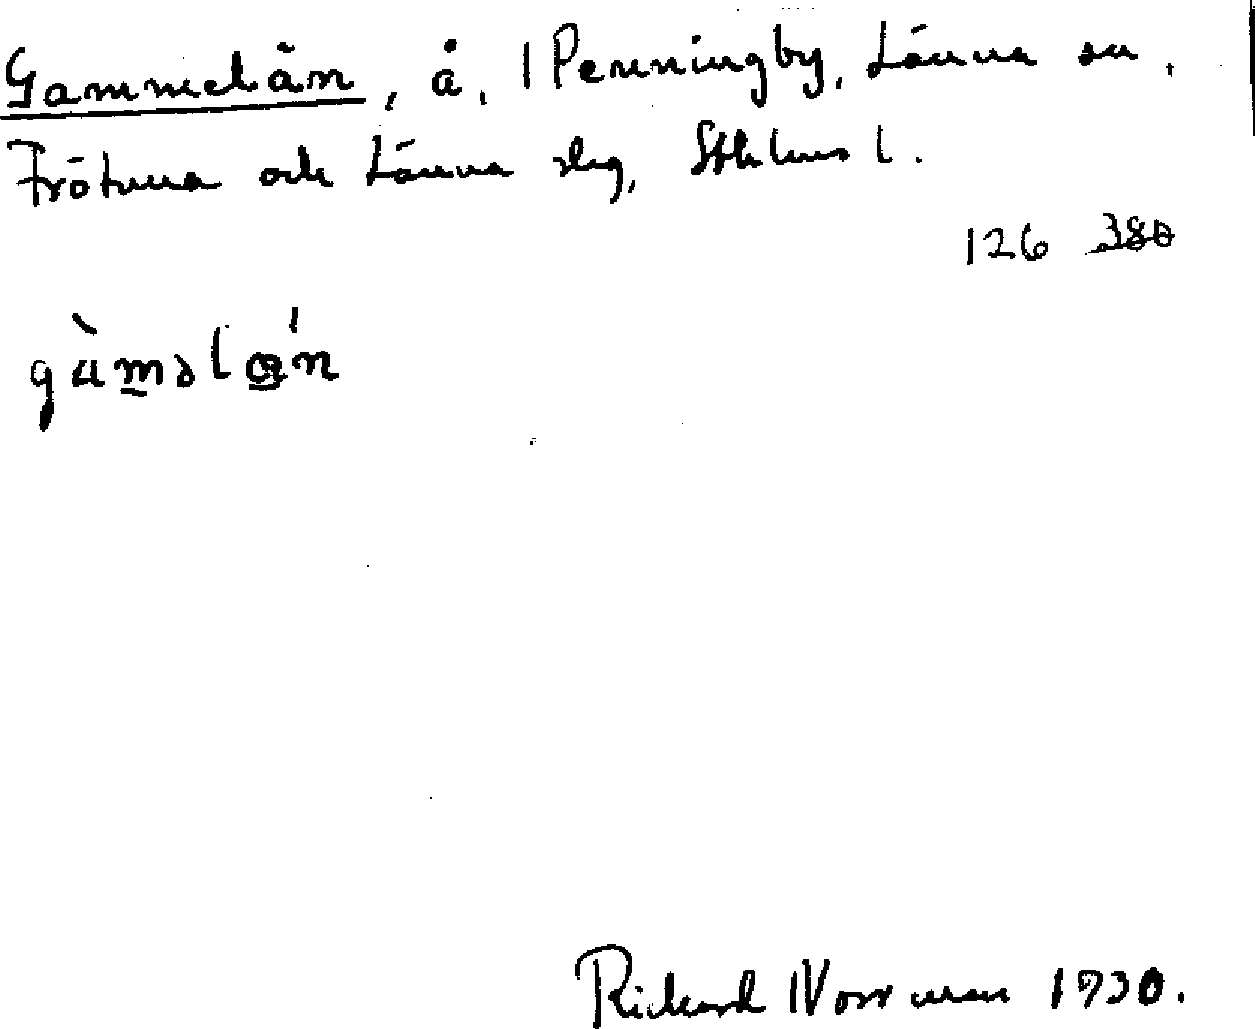 Gammelån, å, Penningby, Länna sn,
Frötuna och Länna slg, Sthlms l.
126 380
gàməlɑ́n
Rickard Norrman 1930.